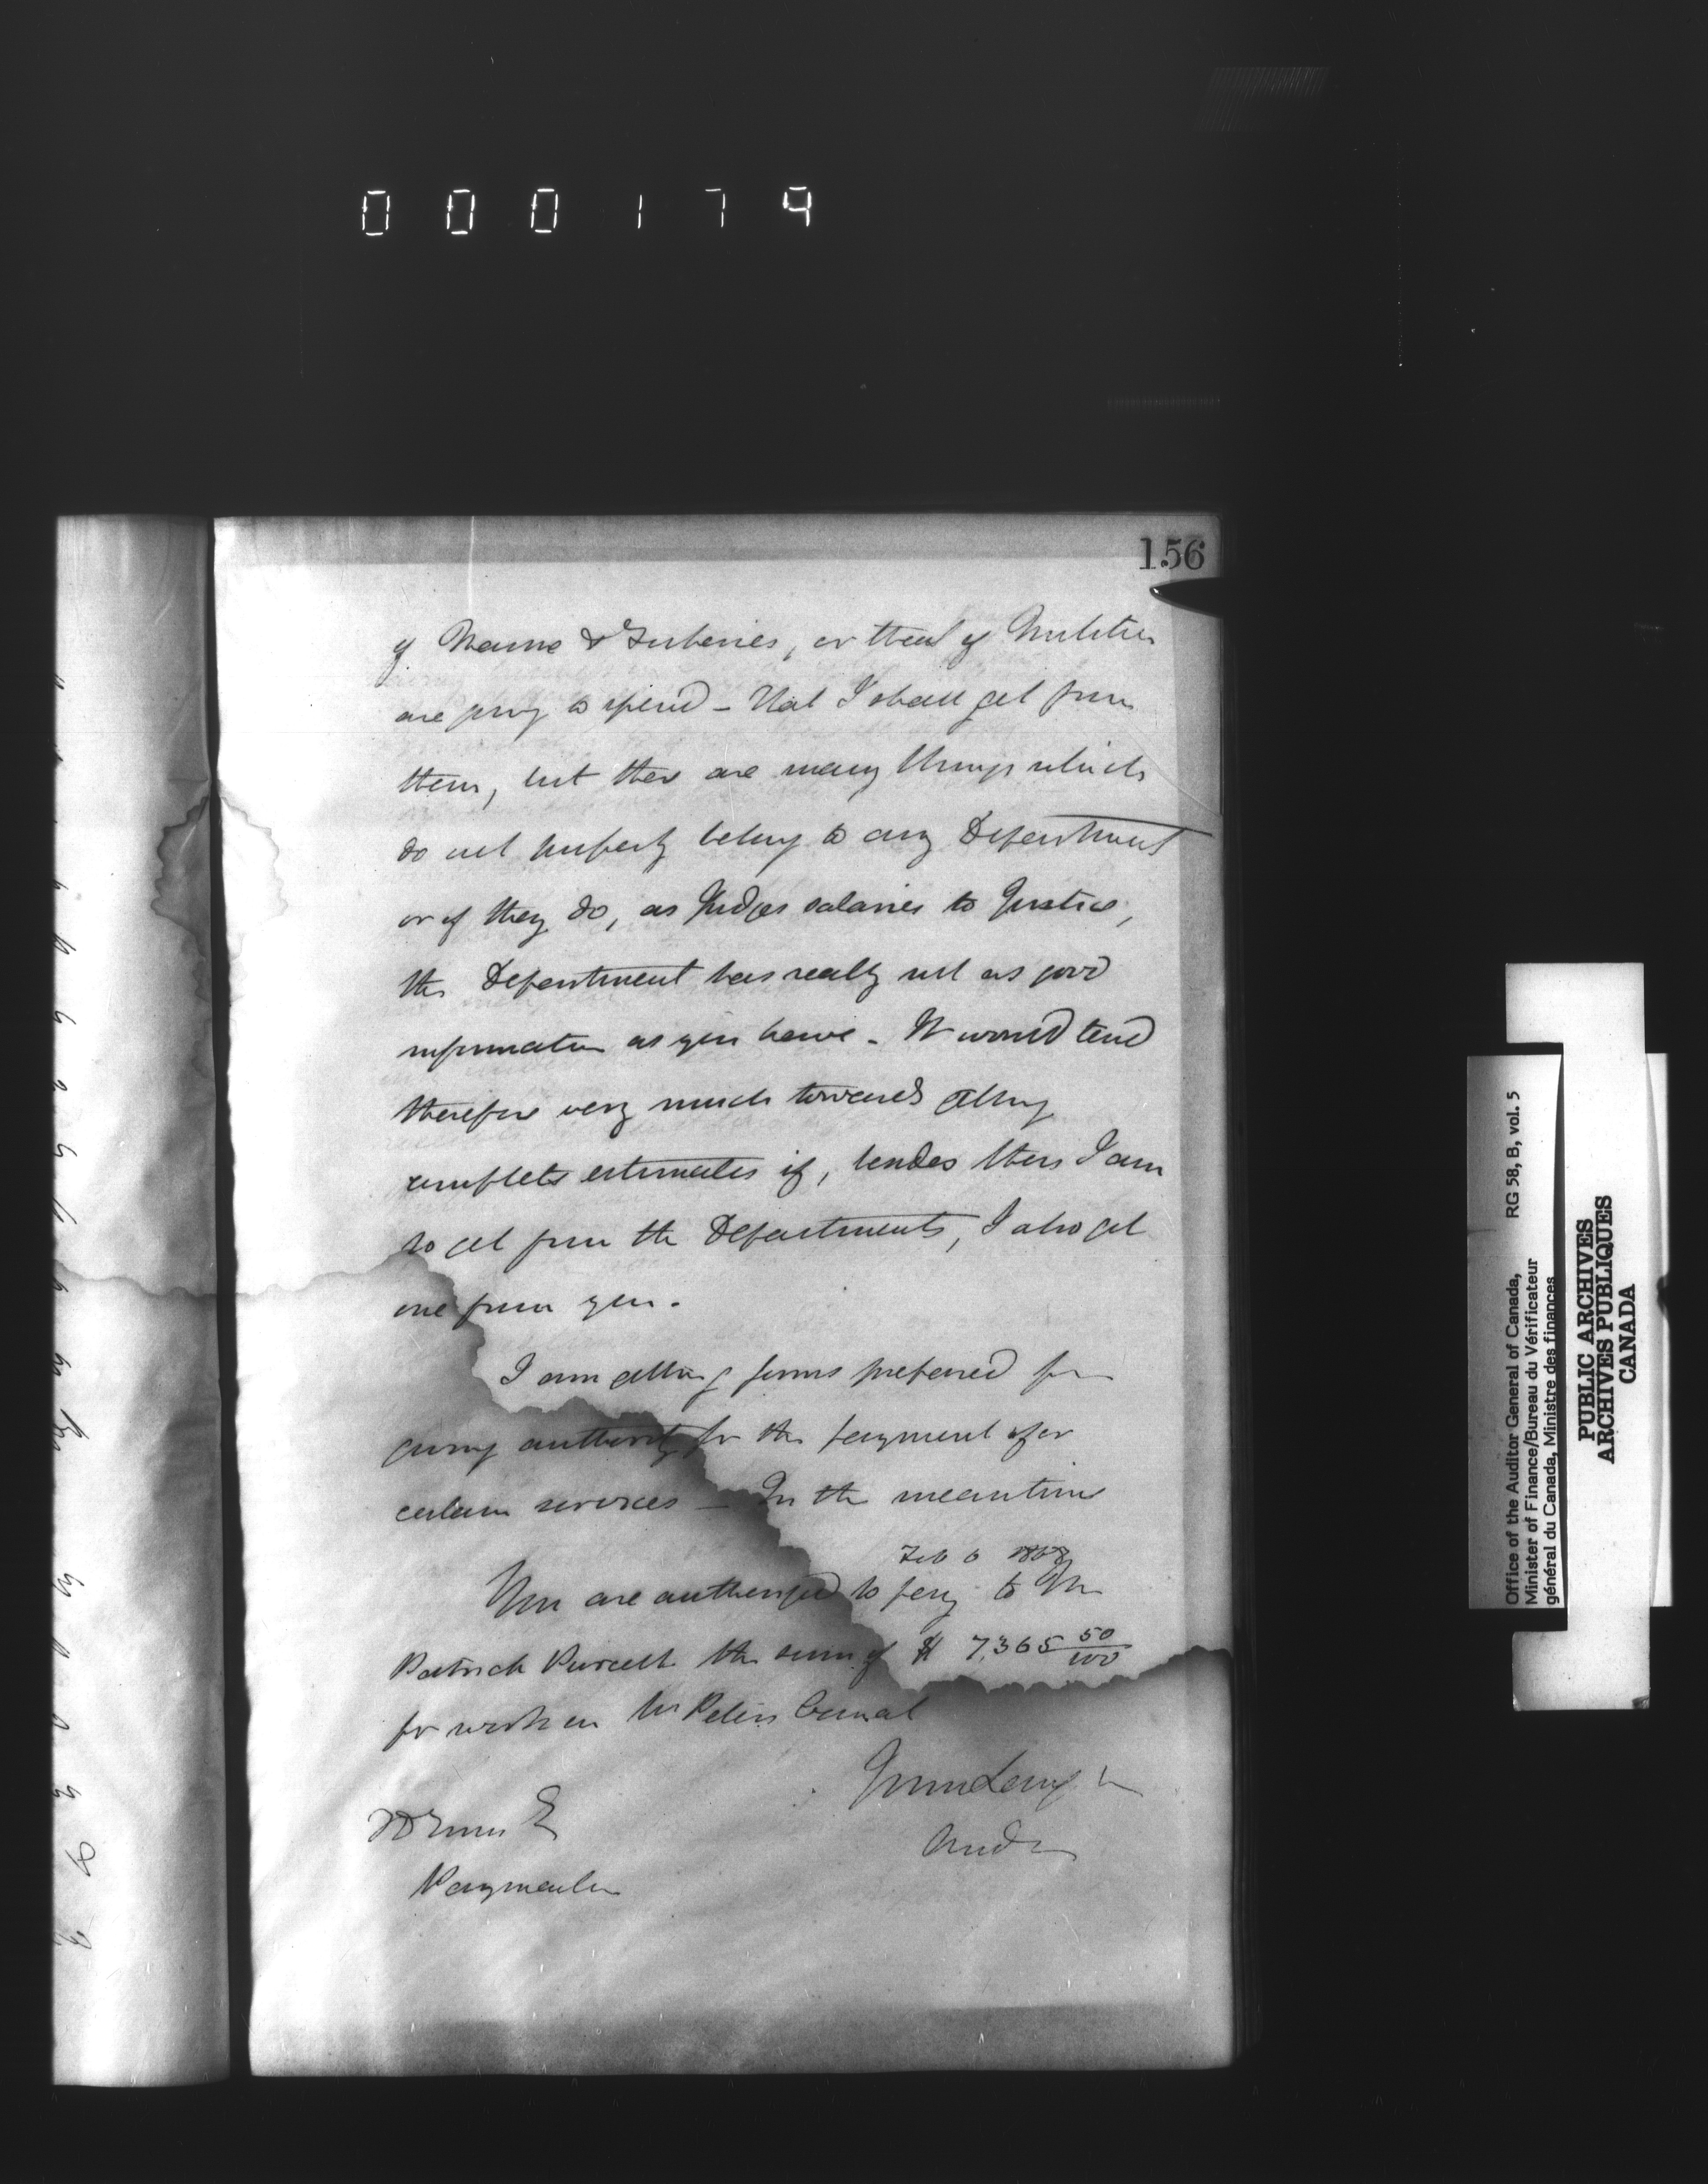 000179
156
of Marine & Fisheries, or that of Militia
are going to spend - That I shall get from
them, but there are many things which
do not properly belong to any Department
or if they do, as Judges salaries to Justice,
the Department has really not as good
information as you have - It would tend
therefore very much towards getting
complete estimates if, besides those I am
to get from the Departments, I also get
one from you.
I am getting forms prepared for
giving authority for the payment of
certain services - In the meantime
Feb 6 1868
You are authorized to pay to Mr
Patrick Purcell the sum of $ 7,365 50/100
for work on St Peters Canal
John Langton
Audr
Paymaster
Office of the Auditor General of Canada,
Minister of Finance/Bureau du Vérificateur
général du Canada, Ministre des finances
RG 58, B, vol. 5
PUBLIC ARCHIVES
ARCHIVES PUBLIQUES
CANADA